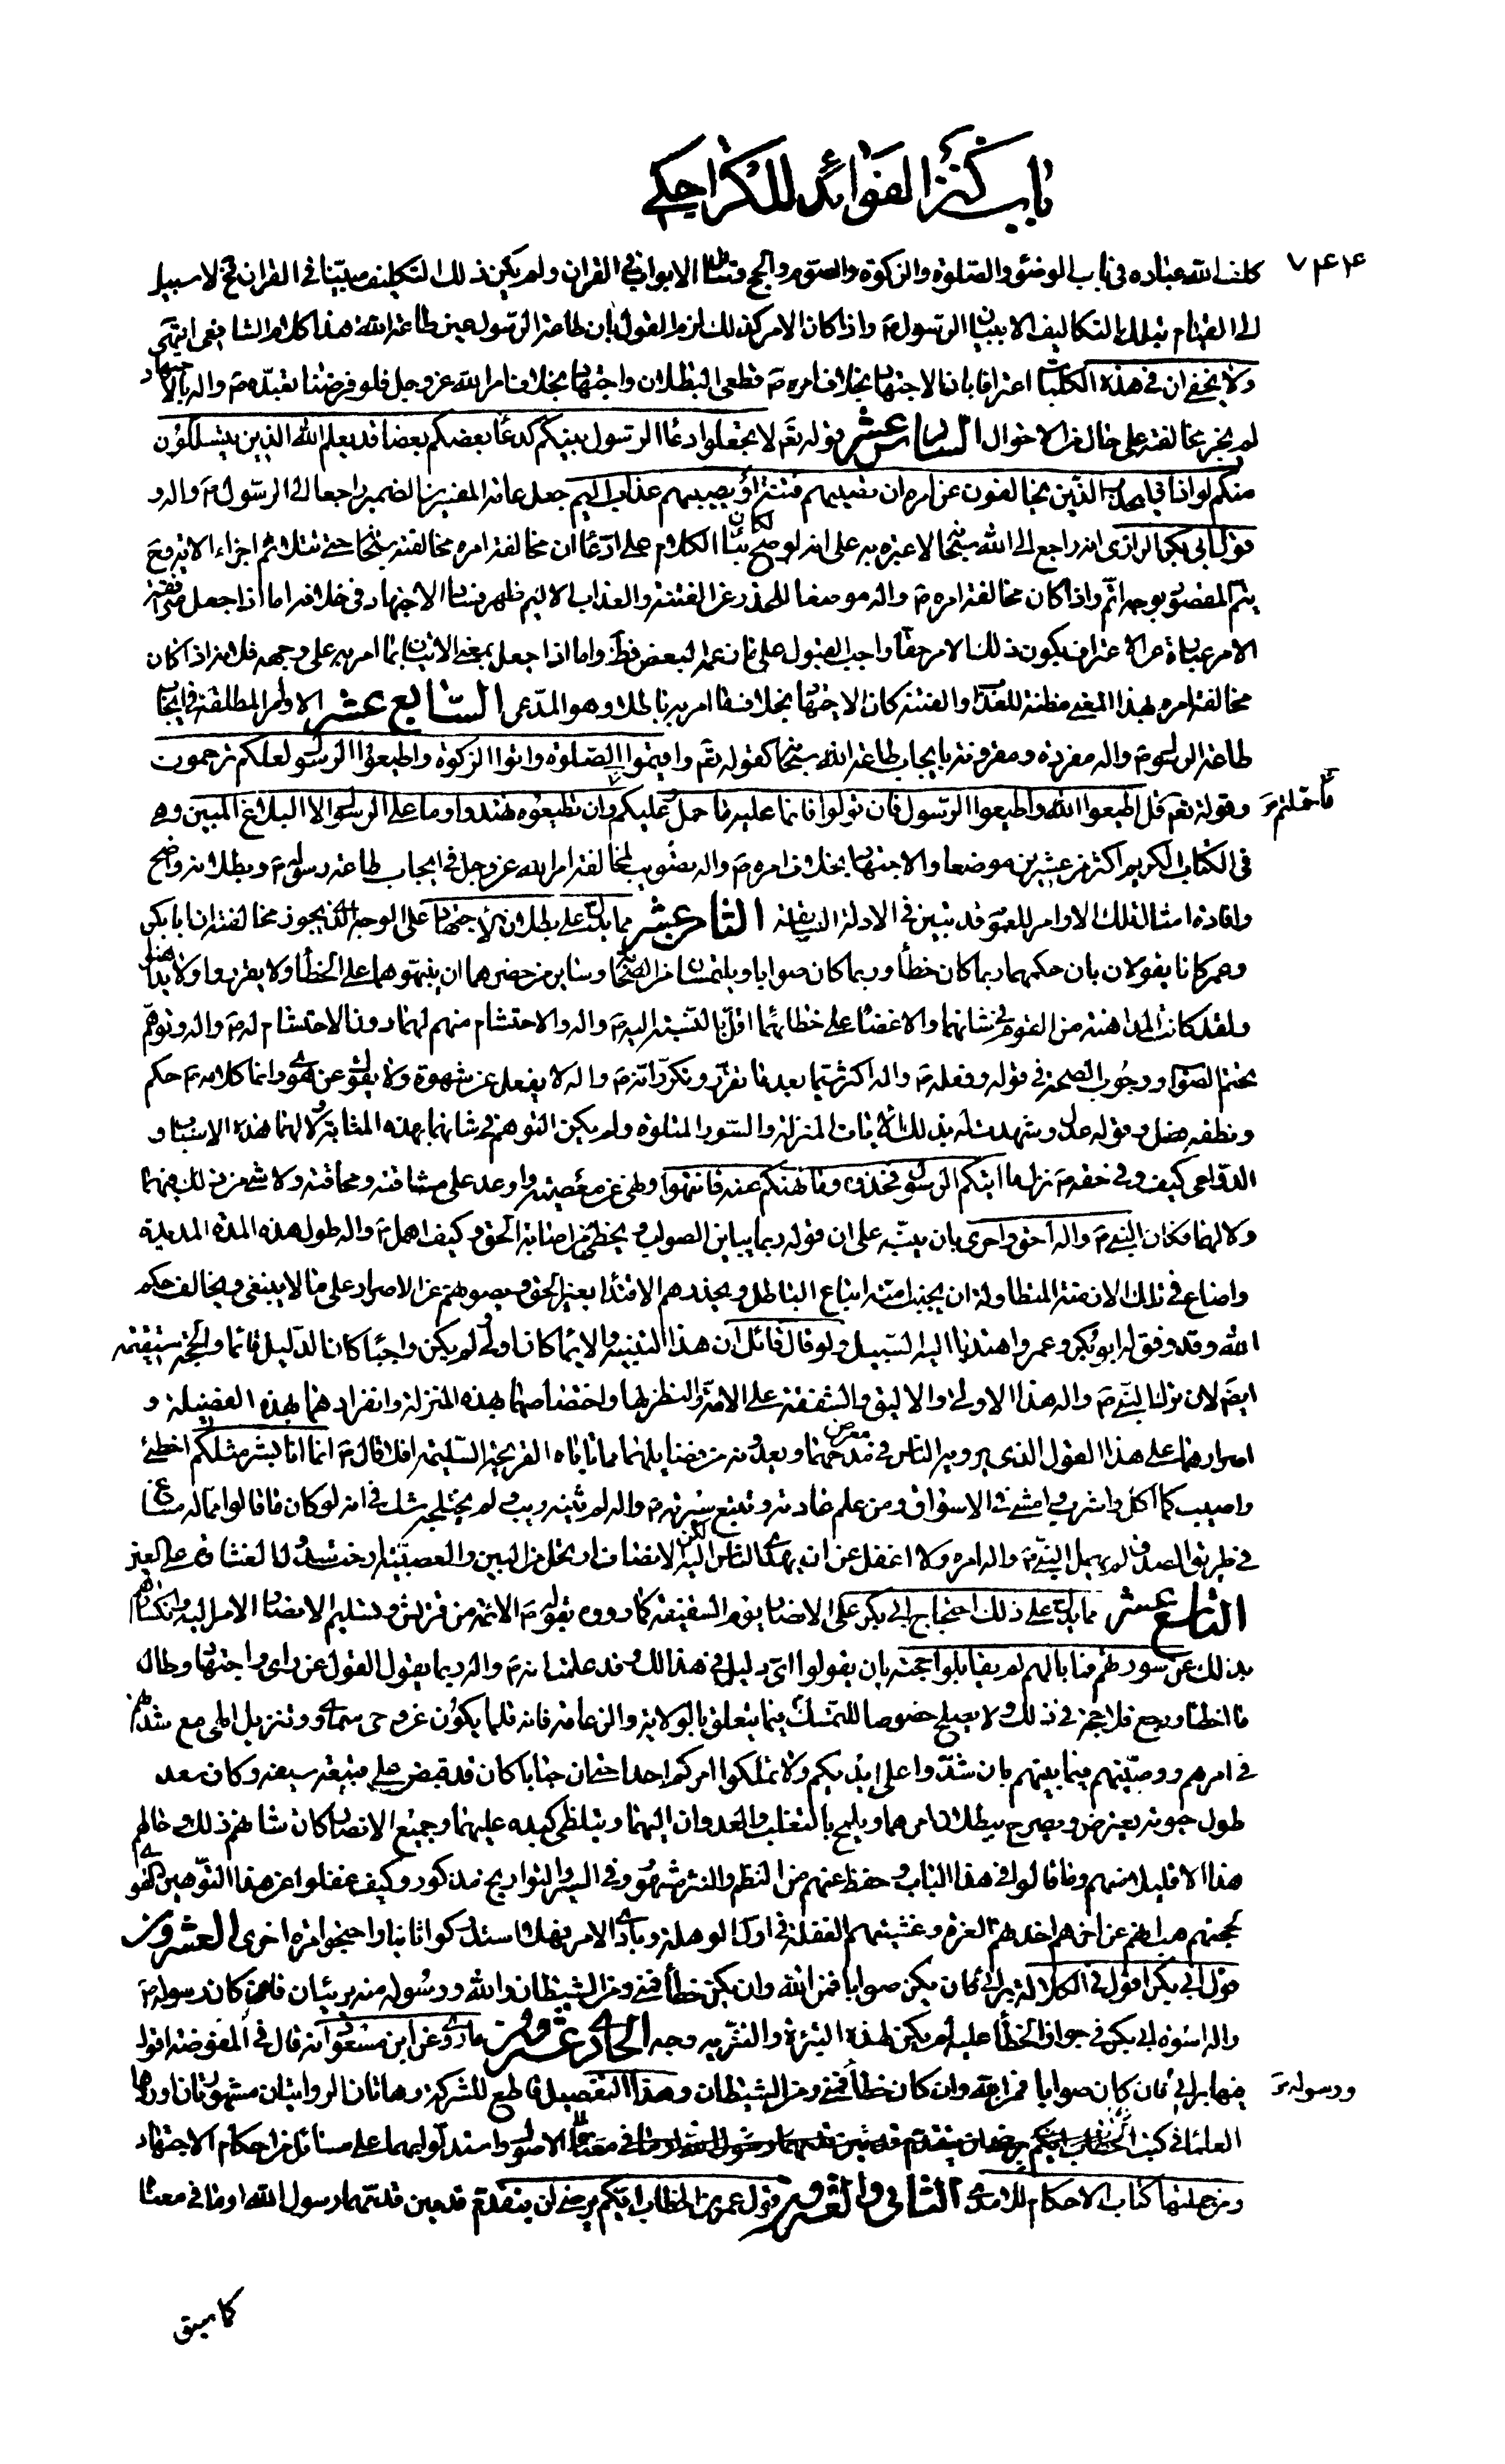 باب كنز الفوائد للكراجكي
٧٤٤
كلف الله عباده في باب الوضوء والصلوة والزكوة والصوم والحج وسائر الابواب في القران ولم يكن ذلك التكليف مبينا في القران فح لا سبيل
الى القيام بتلك التكاليف الا ببيان الرسول ص واذا كان الامر كذلك لزم القول بان طاعة الرسول عين طاعة الله هذا كلام الشافعي انتهى
ولا يخفى ان في هذه الكلمات اعترافا بان الاجتهاد بخلاف امره ص قطعي البطلان واجتهاد بخلاف امر الله عز وجل فلو فرضنا تعبده ص واله بالاجتهاد
لم يجز مخالفته على حال من الاحوال السادس عشر قوله تعم لا تجعلوا دعاء الرسول بينكم كدعاء بعضكم بعضا قد يعلم الله الذين يتسللون
منكم لواذا فليحذر الذين يخالفون عن امره ان تصيبهم فتنة او يصيبهم عذاب اليم جعل عامة المفسرين الضمير راجعا الى الرسول ص واله و
قول ابي بكر الرازي انه راجع الى الله سبحانه لا عبرة به على انه لو صح لكان بناء الكلام على ادعاء ان مخالفة امره مخالفته سبحانه حتى اجزاء الاية فح
يتم المقصود بوجه اتم واذا كان مخالفة امره ص واله موصفا للحذر عن الفتنة والعذاب الاليم ظهر فساد الاجتهاد في خلافه اما اذا جعل موافقة
الامر عبارة عن الاعتراف بكون ذلك الامر حقا واجب القبول على ما زعمه البعض فظ واما اذا جعل بمعنى الاتيان بما امر به على وجهه فلانه اذا كان
مخالفة امره بهذا المعنى مظنة للعذاب والفتنة كان الاجتهاد بخلاف ما امر به باطلا وهو المدعى السابع عشر الاوامر المطلقة في ايجاب
طاعة الرسول ص واله مفردة ومقرونة بايجاب طاعة الله سبحانه كقوله تعم واقيموا الصلوة واتوا الزكوة واطيعوا الرسول لعلكم ترحمون
وقوله تعم قل اطيعوا الله واطيعوا الرسول فان تولوا فانما عليه ما حمل وعليكم وان تطيعوه تهتدوا وما على الرسول الا البلاغ المبين وهي
ما حملتم صح
في الكتاب الكريم اكثر من عشرين موضعا والاجتهاد بخلاف امره ص واله تصويب لمخالفة امر الله عز وجل في ايجاب طاعة رسوله ص وبطلانه واضح
وافادة امثال تلك الاوامر للعموم قد تبين في الادلة السابقة الثامن عشر مما يدل على بطلان الاجتهاد على الوجه الذي يجوز مخالفته ان ابا بكر
وعمر كانا يقولان بان حكمهما ربما كان خطأ وربما كان صوابا ويلتمسان من الصحابة وسائر من حضرهما ان ينبهوهما على الخطأ ولا يقروا ولا يداهنوا
ولقد كانت المداهنة من القوم في شانهما والاغضاء على خطائهما اقل بالنسبة اليه ص واله والاحتشام منهم لهما دون الاحتشام له ص واله وتوهم
تحتم الصواب ووجوب الصحة في قوله وفعله ص واله اكثر سيما بعد ما تقرر وتكرر انه ص واله لا يفعل عن شهوة ولا يقول عن هوى وانما كلامه ص حكم
ونطقه فصل وقوله عدل وشهدت له بذلك الايات المنزلة والسور المتلوة ولم يكن التوهم في شانهما بهذه المثابة ولا لهما هذه الاسباب و
الدواعي كيف وفي حقه ص نزل ما اتيكم الرسول فخذوه وما نهيكم عنه فانتهوا ونهى عن معصيته واوعد على مشاقته ومحاقته ولا شيء من ذلك فيهما
ولا لهما فكان النبي ص واله احق واحرى بان ينبه على ان قوله ربما يباين الصواب ويخطئ من اصابة الحق وكيف اهمل ص واله طول هذه المدة المديدة
واضاع في تلك الازمنة المتطاولة ان يجنب امته اتباع الباطل ويحذرهم الاقتداء بغير الحق ويصونهم عن الاصرار على ما لا ينبغي ويخالف حكم
الله وقد وفق له ابو بكر وعمر واهتديا اليه السبيل ولو قال قائل ان هذا التنبيه والايماء كان اولى ولم يكن واجبا كان الدليل قائما والحجة مستقيمة
ايضا لان ترك النبي ص واله هذا الاولى والاليق والشفقة على الامة والنظر لها واختصاصهما بهذه المنزلة وانفرادهما بهذه الفضيلة و
اصرارهما على هذا القول الذي يرويه الناس في معرض مدحهما ويعدونه من فضايلهما مما تاباه القريحة السليمة افلا قال ص انما انا بشر مثلكم اخطئ
واصيب كما اكل واشرب وامشي في الاسواق ومن علم عادته وتتبع سيرته ص واله لم ريب ولم يختلجه شك في انه لو كان ما قالوا مما له مساغ
في طريق الصدق لم يهمل النبي ص واله امره ولا اغفل عن ان يهدي الناس اليه لكن الانصاف ارتحل من البين والعصبية ارخت سدول الغشاوة على العين
التاسع عشر مما يدل على ذلك احتجاج ابي بكر على الانصار يوم السقيفة كما رووه بقوله ص الائمة من قريش وتسليم الانصار الامر اليه وانكسارهم
بذلك عن سورتهم فما بالهم لم يقابلوا حجته بان يقولوا اي دليل في هذا لك وقد علمنا انه ص واله ربما يقول القول عن راي واجتهاد وطال
ما اخطأ ورجع فلا حجة في ذلك ولا يصلح خصوصا للتمسك فيما يتعلق بالولاية والزعامة فانه قلما يكون عن وحي سماوي وتنزيل الهي مع شدتهم
في امرهم ووصيتهم فيما بينهم بان شدوا على ايديكم ولا تملكوا امركم احدا حتى ان حبابا كان قد قبض على قبيعة سيفه وكان سعد
طول حيوته يعترض ويصرح ببطلان امرهما ويلمح بالتغلب والعدوان اليهما ويتلظى كبده عليهما وجميع الانصار كان شانهم ذلك حالهم
هذا الا قليلا منهم وما قالوا في هذا الباب وحفظ عنهم من النظم والنثر مشهور وفي السير والتواريخ مذكور وكيف غفلوا عن هذا التوهين القوي
لحجتهم هب انهم عن اخرهم اخذهم العزة وغشيتهم الغفلة في اول الوهلة وبادي الامر فهلا استدركوا ثانيا واحتجوا مرة اخرى العشرون
قول ابي بكر اقول في الكلالة برايي فان يكن صوابا فمن الله وان يكن خطأ فمني ومن الشيطان والله ورسوله منه بريئان فان كان رسوله ص
واله اسوة ابي بكر في جواز الخطأ عليه لم يكن لهذه التبرئة والتنزيه وجه الحادي عشرون ما روي عن ابن مسعود انه قال في المفوضة اقول
فيها برايي فان كان صوابا فمن الله وان كان خطأ فمني ومن الشيطان وهذا التفصيل قاطع للشركة وهاتان الروايتان مشهورتان اوردها
ورسوله صح
العلماء في كتب الاصول واستدلوا بهما على مسائل من احكام الاجتهاد
ومن جملتها كتاب الاحكام للامدي الثاني والعشرون قول عمر بن الخطاب ايكم يرضى ان يتقدم قدمين قدمهما رسول الله او ما في معناه
كما سبق